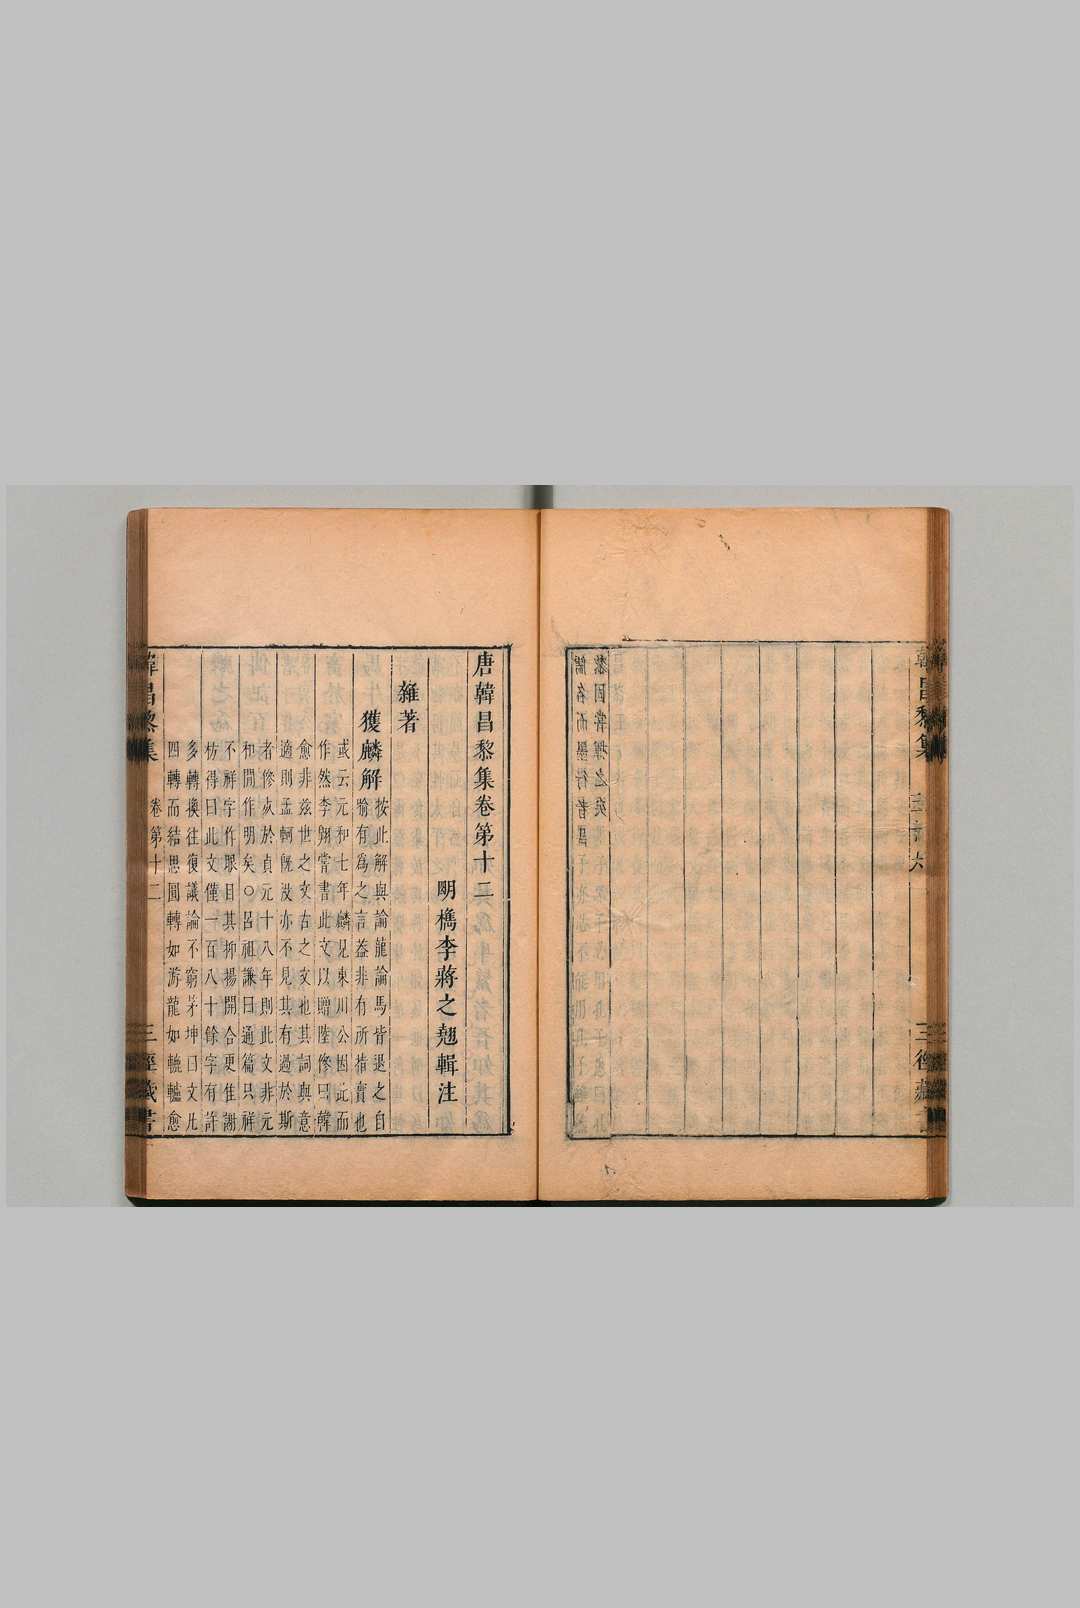 韓昌黎集
三徑藏
唐韓昌黎集卷第十二
明檇李蔣之翹輯注
雜著
獲麟解
按此解與論龍論馬皆退之自
喻有爲之言蓋非有所指實也
或云元和七年麟見東川公因此而
作然李翺嘗書此文以贈陸傪曰韓
愈非兹世之文古之文也其詞與意
適則孟軻既沒亦不見其有過於斯
者傪歿於貞元十八年則此文非元
和間作明矣○呂祖謙曰通篇只祥
不祥字作眼目其抑揚開合更佳謝
枋得曰此文僅一百八十餘字有許
多轉換往復議論不窮茅坤曰文凡
四轉而結思圓轉如游龍如轆轤愈
韓昌黎集
卷第十二
三徑藏書